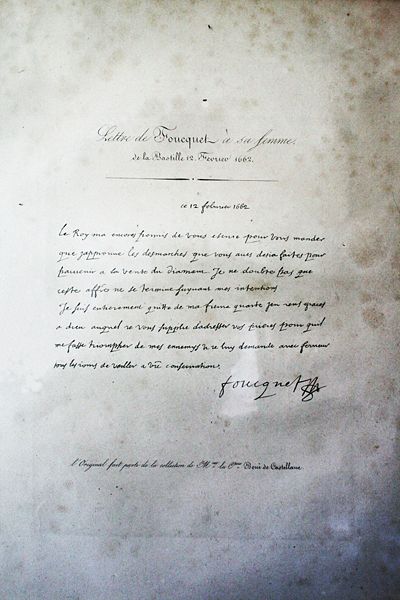 Lettre de Foucquet à sa femme.
de la Bastille 12. Fevrier 1662.
ce 12 febvrier 1662
Le Roy ma encores permis de vous escrire pour vous mander
que japprouve les desmarches que vous aues desia faites pour
paruenir a la vente du diamant. Je ne doubte pas que
ceste affre ne se termine suyuant mes intentions
Je suis entierement quitte de ma fieure quarte jen rens graces
a dieu auquel je vous supplie dadresser vos prieres pour quil
me fasse triompher de mes ennemys & je luy demande avec ferueur
tous les iours de veiller a vre conseruation.
foucquet
l'Original fait partie de la collection de Mme la Csse Boni de Castellane